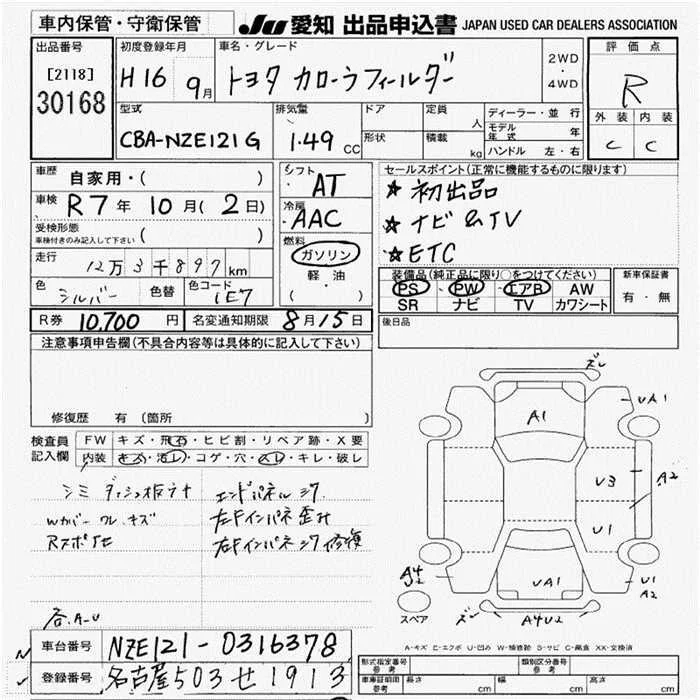 車内保管・守衛保管
JU 愛知 出品申込書 JAPAN USED CAR DEALERS ASSOCIATION
出品番号
[2118]
30168
初度登録年月
H16 9月
車名・グレード
トヨタ カローラフィールダー
2WD
・
4WD
評価点
R
外装 内装
C C
型式
CBA-NZE121G
排気量
1.49 CC
ドア
形状
定員 人
積載 kg
ディーラー・並行
モデル年式 年
ハンドル 左・右
車歴 自家用・( )
車検 R7年 10月(2日)
受検形態
車検付きのみ記入して下さい ( )
走行 12万3千897km
色 シルバー 色替 色コード 1E7
シフト
AT
冷房
AAC
燃料
ガソリン
軽油
( )
セールスポイント(正常に機能するものに限ります)
★初出品
★ナビ&TV
★ETC
装備品(純正品に限り○をつけてください)
PS PW エアB AW
SR ナビ TV カワシート
新車保証書
有・無
R券 10,700円 名変通知期限 8月15日
後日品
注意事項申告欄(不具合内容等は具体的に記入して下さい)
修復歴 有 (箇所 )
検査員
記入欄
FW キズ・飛石・ヒビ割・リペア跡・X要
内装 キズ・汚レ・コゲ・穴・スレ・キレ・破レ
シミ ダッシュ板キナ エンドパネルシワ
Wカバー ワレ、キズ 左Fインパネ歪ミ
右Fインパネシワ修復
各A-U
ズレ
A1
UA1
U3
A2
U1
UA1
A4
U1
A2
スペア
ズレ
A4U2
A-キズ E-エクボ U-凹み W-補修跡 S-サビ C-腐食 XX-交換済
車台番号 NZE121-0316378
登録番号 名古屋503せ1913
型式指定番号
参考
類別区分番号
参考
車庫証明用
参考
長さ cm 幅 cm 高さ cm